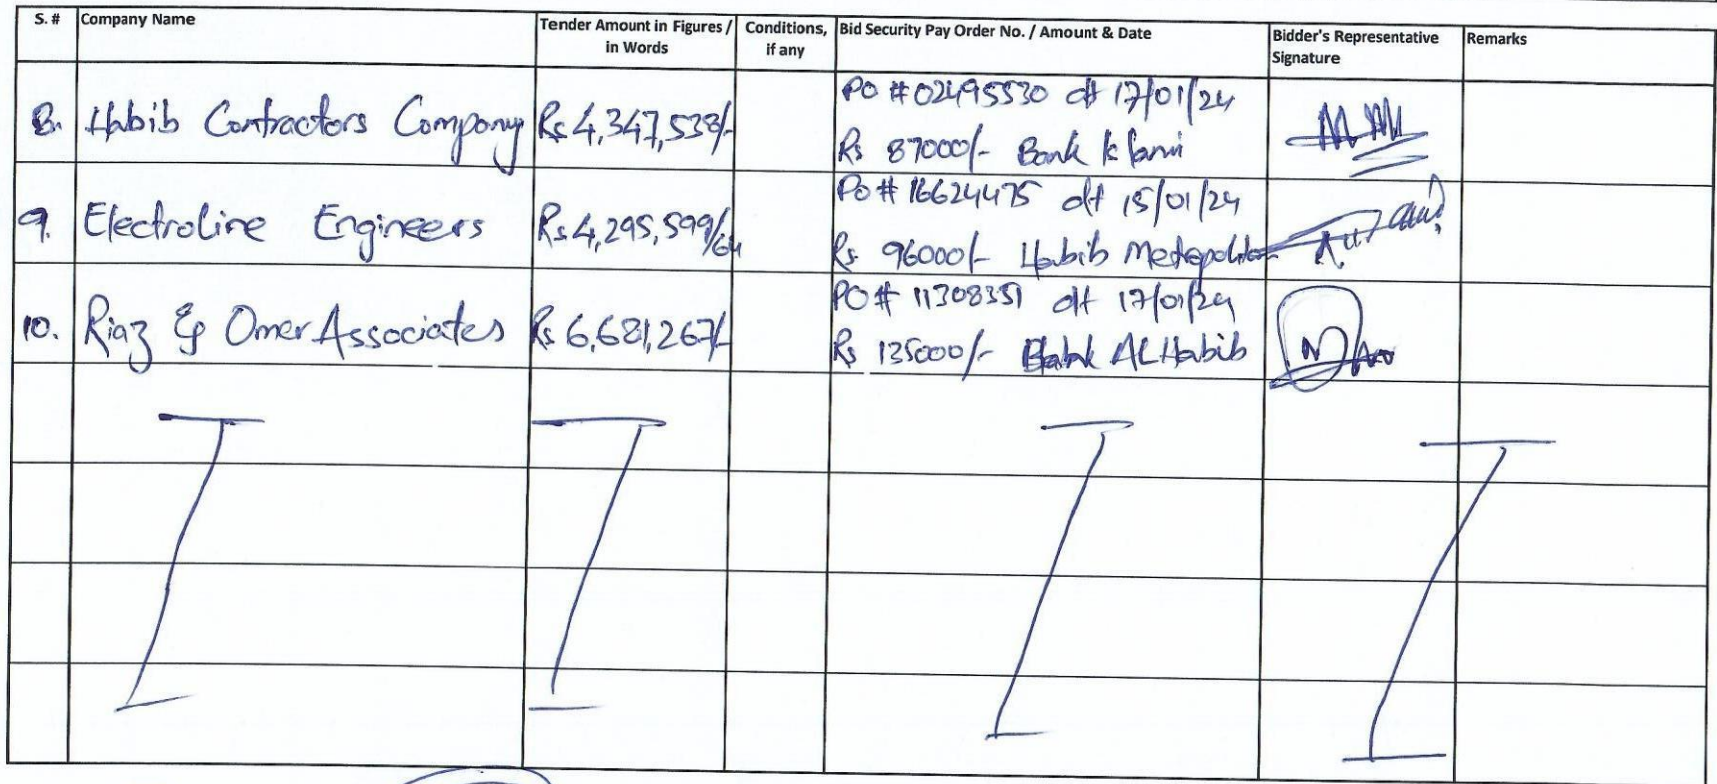 S. # Company Name Tender Amount in Figures / in Words Conditions, if any Bid Security Pay Order No. / Amount & Date Bidder's Representative Signature Remarks
8. Habib Contractors Company Rs 4,347,538/- PO # 02495530 dt 17/01/24
Rs 87000/- Bank Islami
9. Electroline Engineers Rs 4,295,599/64 PO # 16624475 dt 15/01/24
Rs 96000/- Habib Metropolitan
10. Riaz & Omer Associates Rs 6,681,267/- PO # 11308351 dt 17/01/24
Rs 135000/- Bank AL Habib